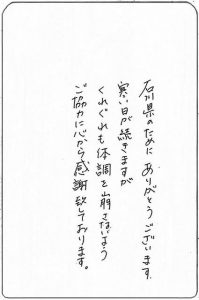 石川県のために ありがとうございます。
寒い日が続きますが
くれぐれも体調を崩さないよう
ご協力に心から感謝致しております。